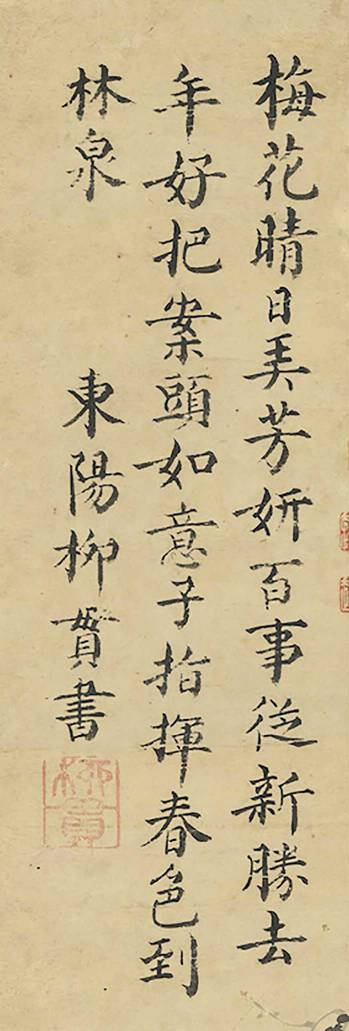 梅花晴日弄芳妍百事從新勝去
年好把案頭如意子指揮春色到
林泉 東陽柳貫書
柳貫